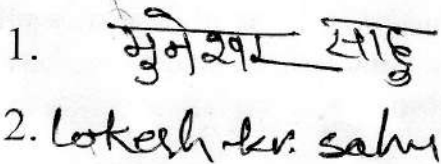 1. मुनेश्वर साहू
2. Lokesh kr. sahu